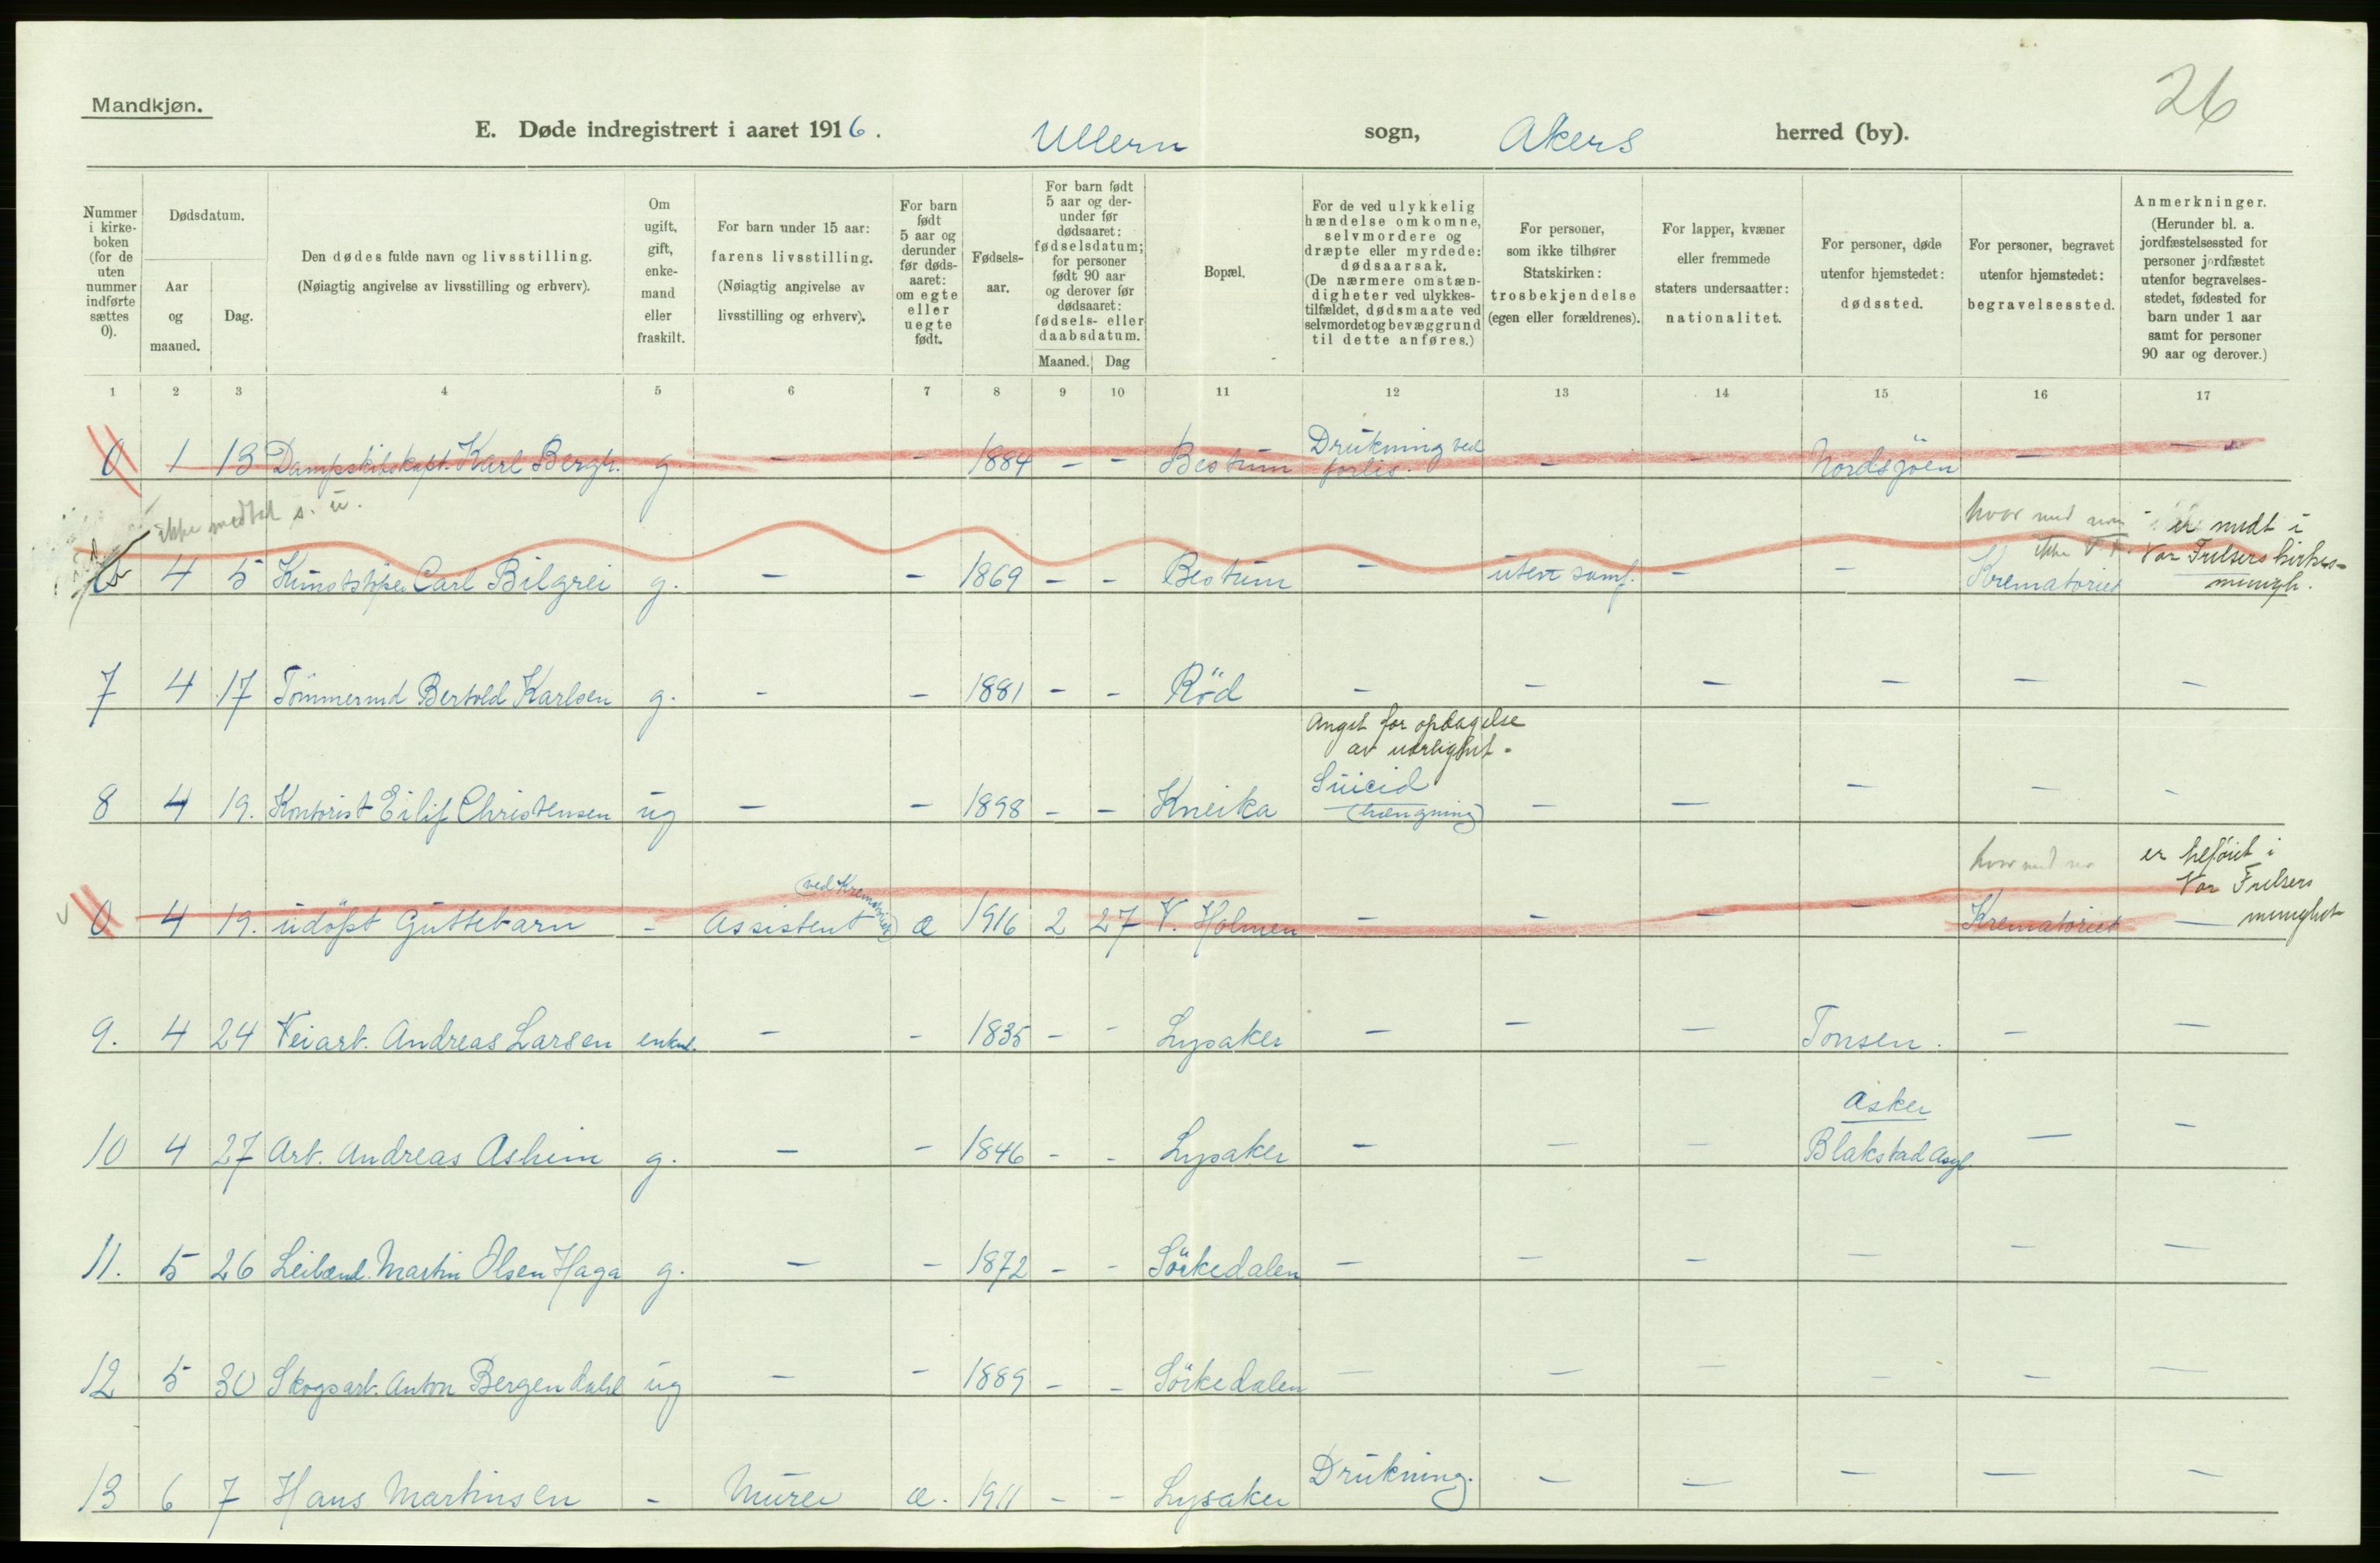 Mandkjøn.
26
E. Døde indregistrert i aaret 1916. Ullern sogn, Akers herred (by).
Nummer i kirkeboken (for de uten nummer indførte sættes 0).
Dødsdatum.
Aar og maaned.
Dag.
Den dødes fulde navn og livsstilling.
(Nøiagtig angivelse av livsstilling og erhverv).
Om ugift, gift, enkemand eller fraskilt.
For barn under 15 aar: farens livsstilling. (Nøiagtig angivelse av livsstilling og erhverv).
For barn født 5 aar og derunder før dødsaaret: om egte eller uegte født.
Fødselsaar.
For barn født 5 aar og derunder før dødsaaret: fødselsdatum; for personer født 90 aar og derover før dødsaaret: fødsels- eller daabsdatum.
Maaned. Dag
Bopæl.
For de ved ulykkelig hændelse omkomne, selvmordere og dræpte eller myrdede: dødsaarsak. (De nærmere omstændigheter ved ulykkestilfældet, dødsmaate ved selvmordet og bevæggrund til dette anføres.)
For personer, som ikke tilhører Statskirken: trosbekjendelse (egen eller forældrenes).
For lapper, kvæner eller fremmede staters undersaatter: nationalitet.
For personer, døde utenfor hjemstedet: dødssted.
For personer, begravet utenfor hjemstedet: begravelsessted.
Anmerkninger. (Herunder bl. a. jordfæstelsessted for personer jordfæstet utenfor begravelsesstedet, fødested for barn under 1 aar samt for personer 90 aar og derover.)
1 2 3 4 5 6 7 8 9 10 11 12 13 14 15 16 17
0 1 13 Dampskibskapt. Karl Bergh. g. - - 1884 - - Bestum Drukning ved forlis. - - Nordsjöen - -
ikke medtat s. u.
4 5 Kunststöper Carl Bilgrei g. - - 1869 - - Bestum - uten samf. - - Krematoriet
er medt i Vor Frelsers kirkes menigh.
7 4 17 Tömmermd Bertold Karlsen g. - - 1881 - - Röd - - - - - -
Angst for opdagelse av uærlighet.
8 4 19. Kontorist Eilif Christensen ug - - 1898 - - Kneika Suicid (hængning) - - - - -
0 4 19. udöpt Guttebarn - Assistent (ved Krematoriet) æ 1916 2 27 V. Holmen - - - - Krematoriet -
er tilföiet i Vor Frelsers menighet
9. 4 24 Veiarb. Andreas Larsen enkem. - - 1835 - - Lysaker - - - Tonsen. - -
10 4 27 Arb. Andreas Ashim g. - - 1846 - - Lysaker - - - Asker Blakstad Asyl - -
11. 5 26 Leilænd. Martin Olsen Haga g. - - 1872 - - Sörkedalen - - - - - -
12 5 30 Skogsarb. Anton Bergendahl ug - - 1889 - - Sörkedalen - - - - - -
13 6 7 Hans Martinsen - Murer æ. 1911 - - Lysaker Drukning. - - - - -